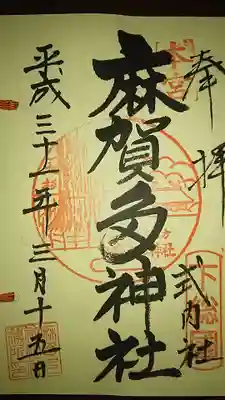 奉拝
本宮
式内社
下総國
麻賀多神社
平成三十一年三月十五日